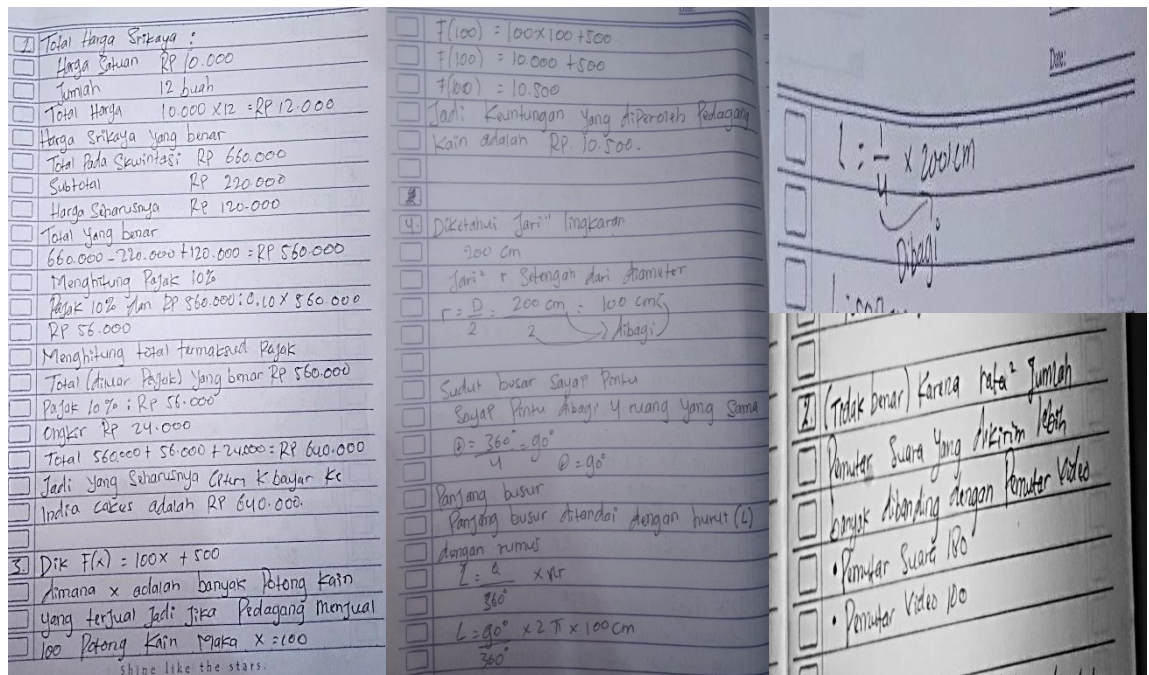 1. Total Harga Srikaya :
Harga Satuan Rp 10.000
Jumlah 12 buah
Total Harga 10.000 x 12 = Rp 12.000
Harga Srikaya yang benar
Total Pada Skwintasi Rp 660.000
Subtotal Rp 220.000
Harga Seharusnya Rp 120.000
Total yang benar
660.000 - 220.000 + 120.000 = Rp 560.000
Menghitung Pajak 10%
Pajak 10% dan Rp 560.000 : 0,10 x 560.000
RP 56.000
Menghitung total termaksud Pajak
Total (diluar Pajak) yang benar Rp 560.000
Pajak 10% : Rp 56.000
Ongkir Rp 24.000
Total 560.000 + 56.000 + 24.000 = Rp 640.000
Jadi yang Seharusnya K bayar Ke
India cakes adalah RP 640.000.
3. Dik F(x) = 100x + 500
dimana x adalah banyak Potong Kain
yang terjual Jadi Jika Pedagang menjual
100 Potong Kain Maka x = 100
Shine like the stars.
F(100) = 100x100 + 500
F(100) = 10.000 + 500
F(100) = 10.500
Jadi Keuntungan yang diperoleh Pedagang
Kain adalah Rp. 10.500.
4. Diketahui Jari" lingkaran
200 cm
Jari² r Setengah dari diameter
r = D/2 = 200 cm/2 = 100 cm
dibagi
Sudut busur Sayap Pintu
Sayap Pintu dibagi 4 ruang yang Sama
θ = 360°/4 = 90° θ = 90°
Panjang busur
Panjang busur ditandai dengan huruf (L)
dengan rumus
L = a/360° x
L = 90°/360° x 2 π x 100 cm
Date:
L = 1/4 x 200 cm
Dibagi
2. (Tidak benar) Karena rata² Jumlah
Pemutar Suara yang dikirim lebih
banyak dibanding dengan Pemutar Video
• Pemutar Suara 180
• Pemutar Video 100